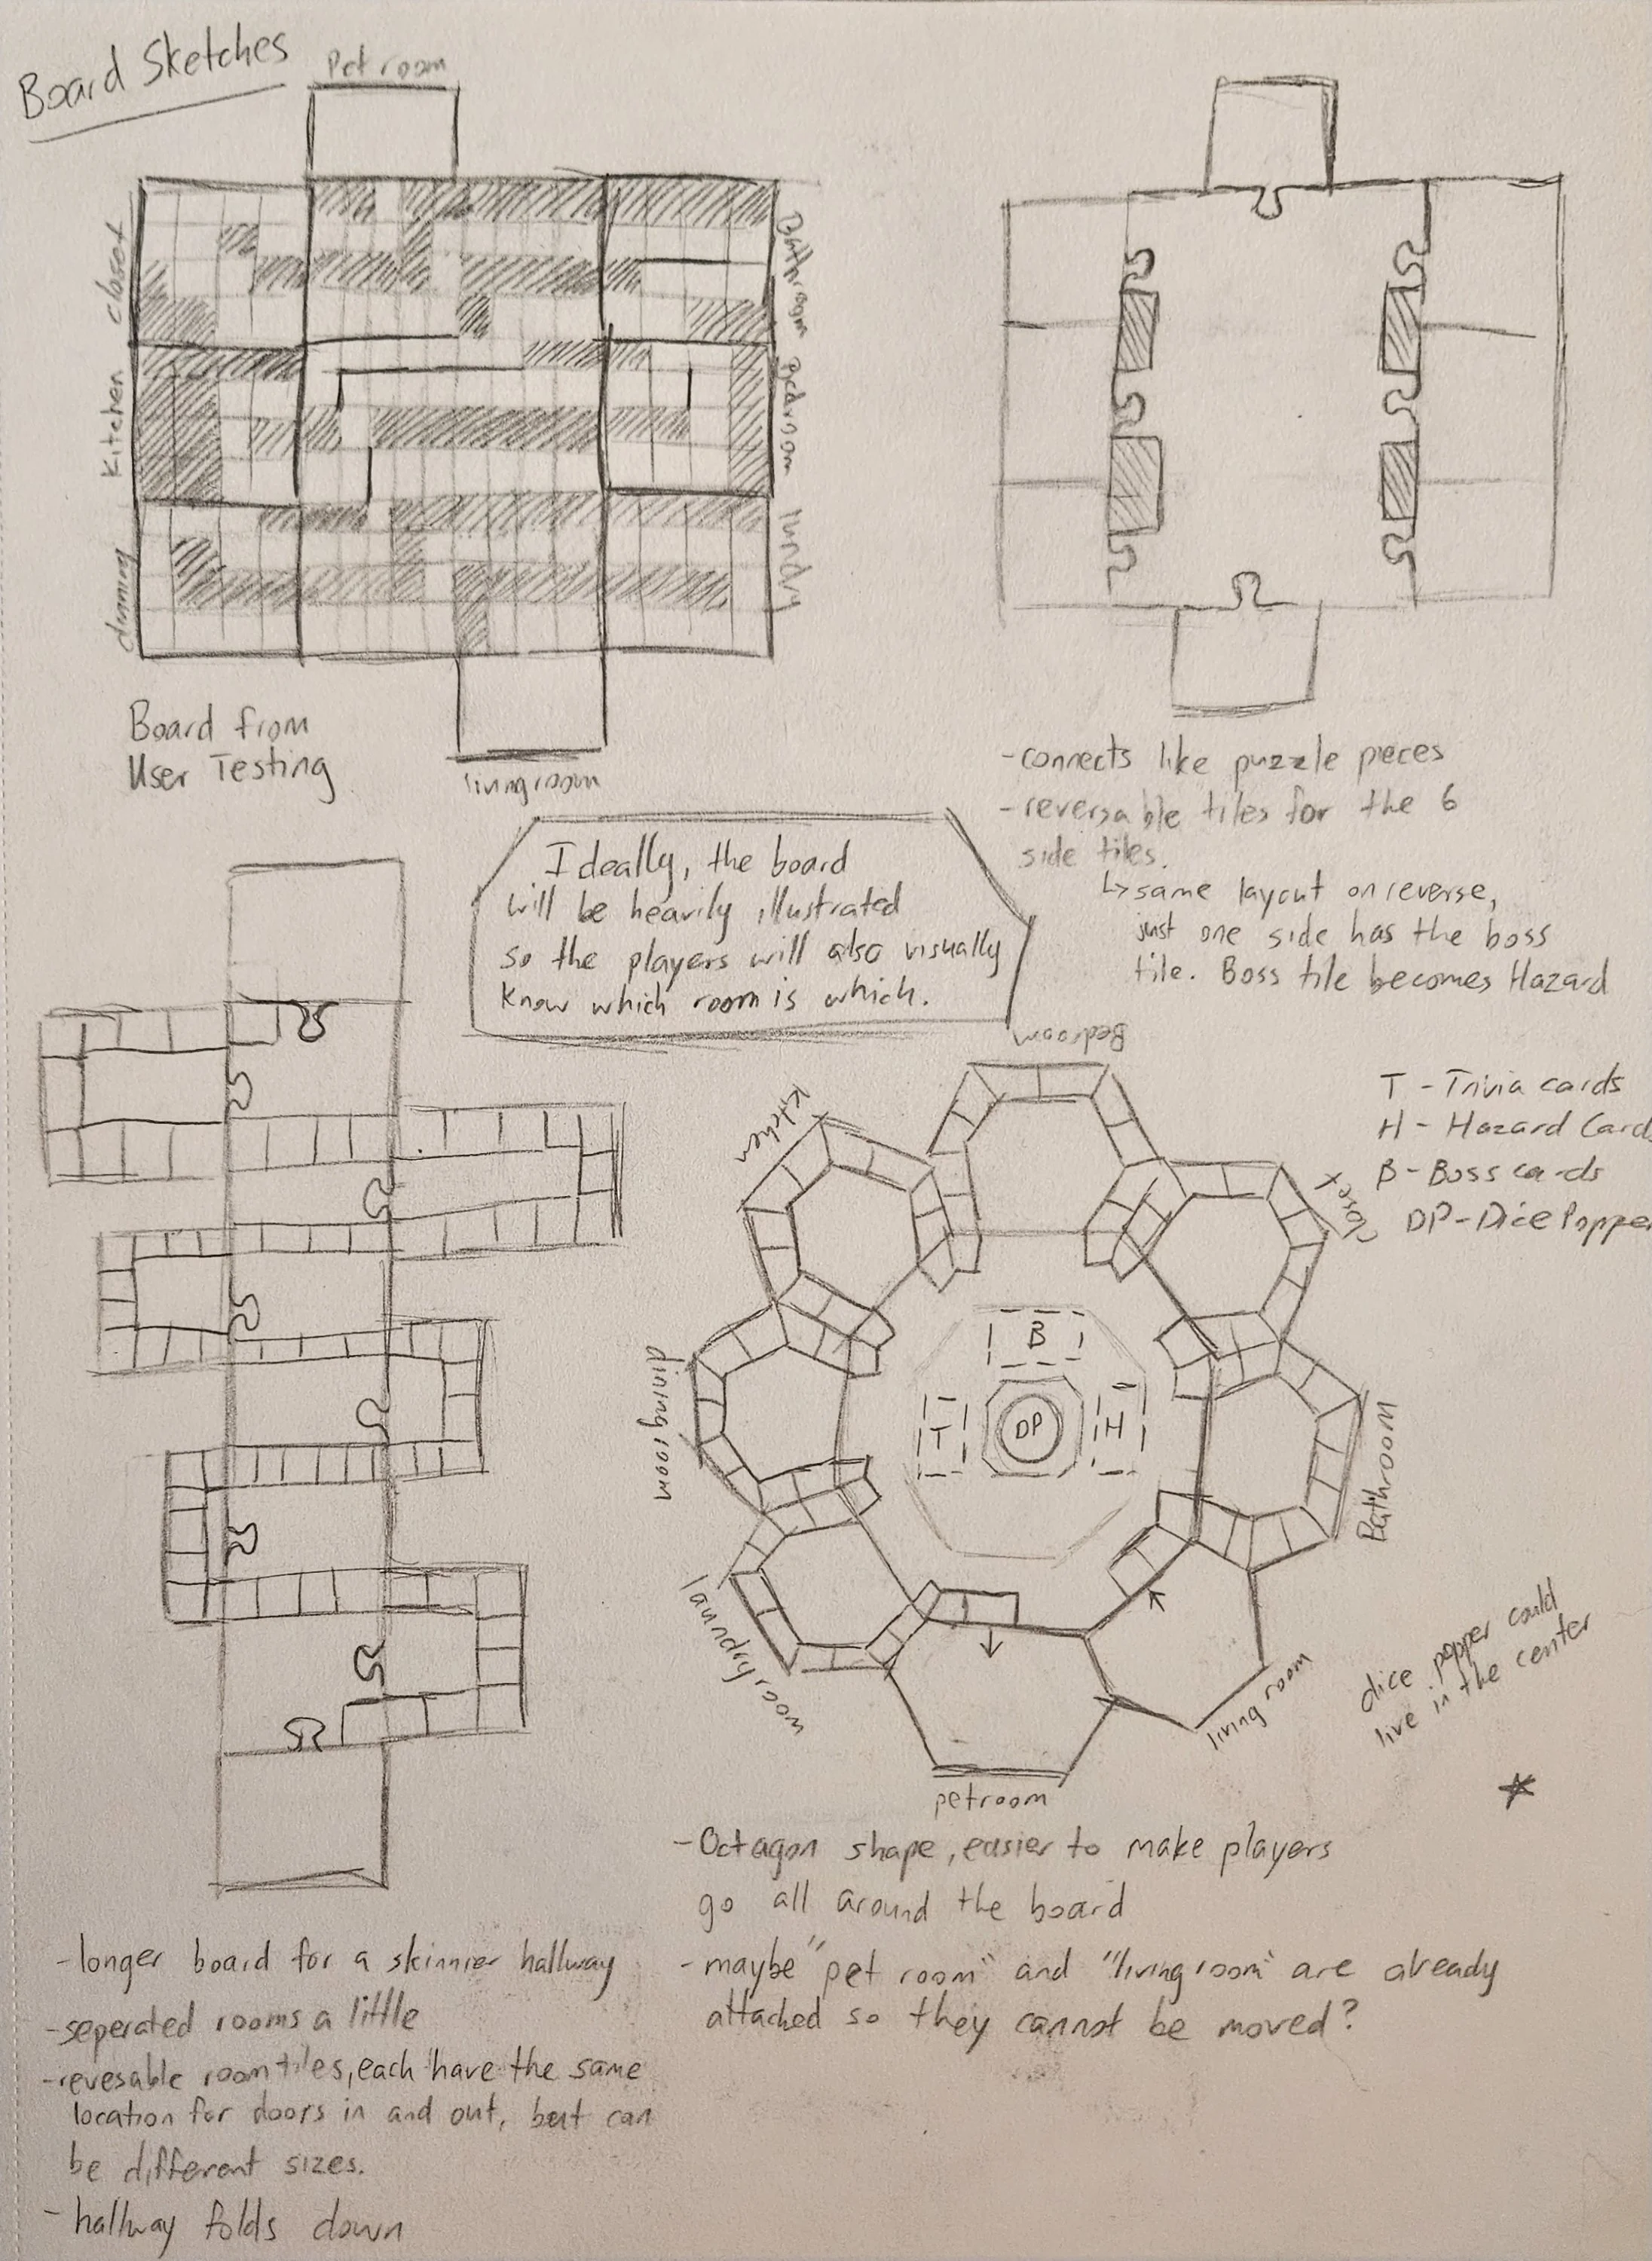 Board Sketches
Pet room
closet
Kitchen
dinning
Bathroom
Bedroom
lundry
livingroom
Board from
User Testing
-connects like puzzle pieces
-reversable tiles for the 6
side tiles.
↳same layout on reverse,
just one side has the boss
tile. Boss tile becomes Hazard
Ideally, the board
will be heavily illustrated
so the players will also visually
know which room is which.
Bedroom
Kitchen
closet
dining room
Bathroom
laundry room
living room
petroom
B
T
DP
H
T - Trivia cards
H - Hazard Card
B - Boss cards
DP - Dice Popper
dice popper could
live in the center
-Octagon shape, easier to make players
go all around the board
-maybe "pet room" and "living room" are already
attached so they cannot be moved?
-longer board for a skinnier hallway
-seperated rooms a little
-revesable room tiles, each have the same
location for doors in and out, but can
be different sizes.
-hallway folds down